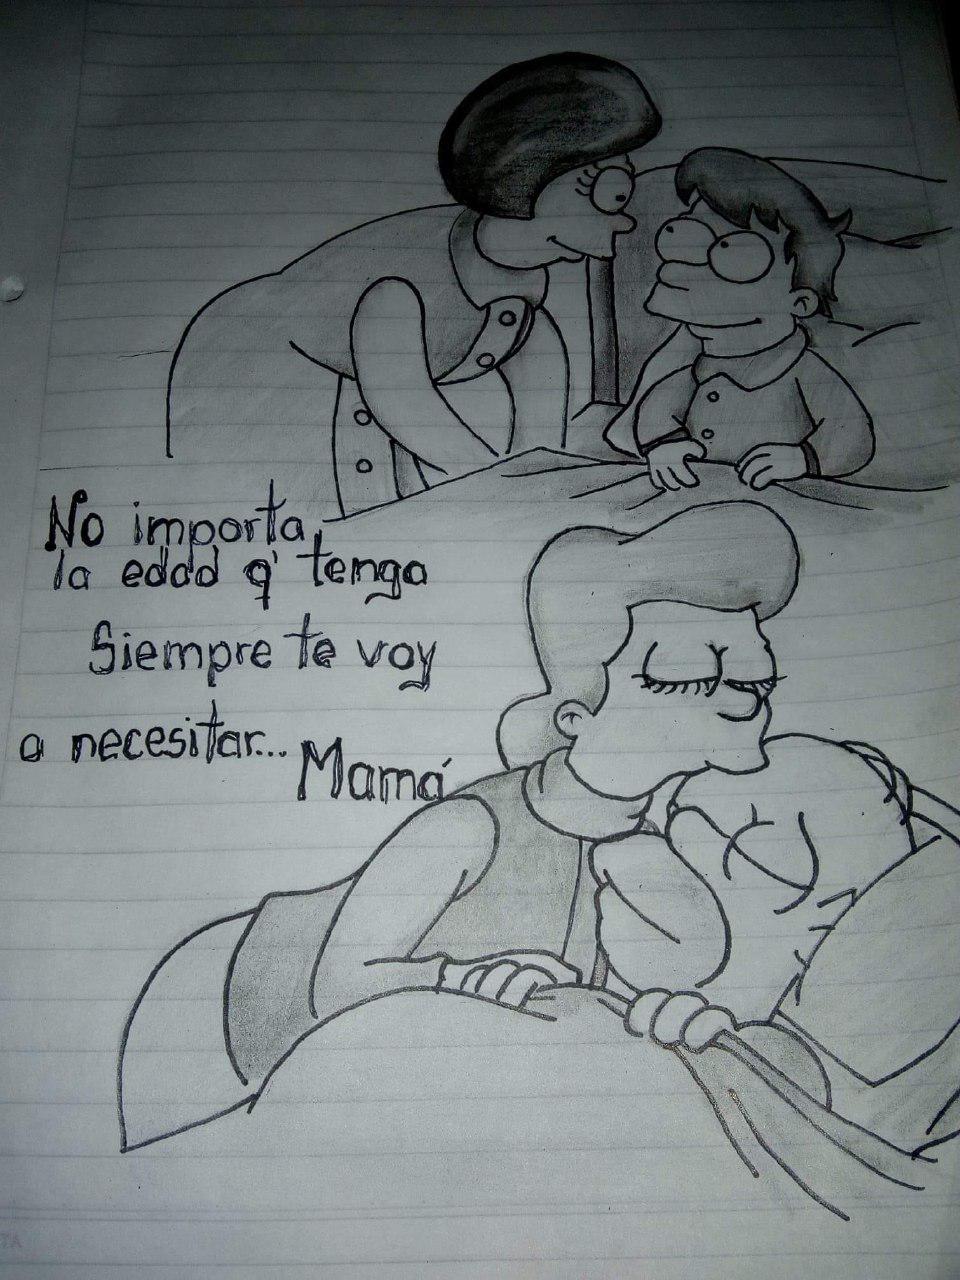 No importa
la edad q' tenga
Siempre te voy
a necesitar...
Mamá